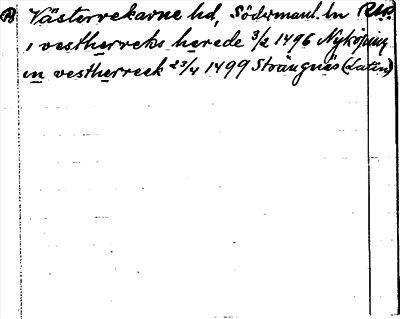 Västerrekarne hd, Södermanl. ln
i vestherreks herede 3/2 1496 Nyköping
in vestherreek 23/4 1499 Strängnäs (latin)